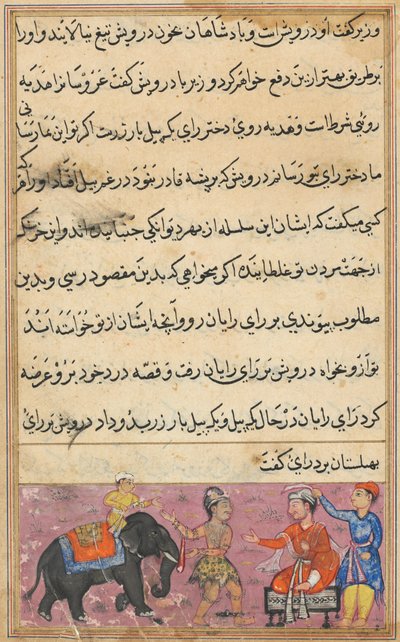 وزیر گفت او درویش است و پادشاهان بخون درویش تیغ نیالایند و او را
بر طریق بهتر ازین دفع خواهم کرد وزیر با درویش گفت عروسانرا هدیه
روئی شرط است و هدیه روئ دختر رای یک پیل بار زرست اگر تو این نما رسانی
ما دختر رای بتو رسانیم درویش که بریشه قادر نبود در غربیل افتاد و را هر
کسی میگفت که ایشان این سلسله از بهر دیوانگی جنبانیده اند و این خرسنگ
از جهت مردن تو غلطانیده اگر میخواهی که بدین مقصود رسی و بدین
مطلوب پیوندی بر رای رایان رو و آنچه ایشان از تو خواسته اند
تو ازو بخواه درویش بر رای رایان رفت و قصه درد خود برو عرضه
کرد رای رایان در حال یک پیل و یک پیل بار زر بدو داد درویش بر رای
بهلستان برد رای گفت